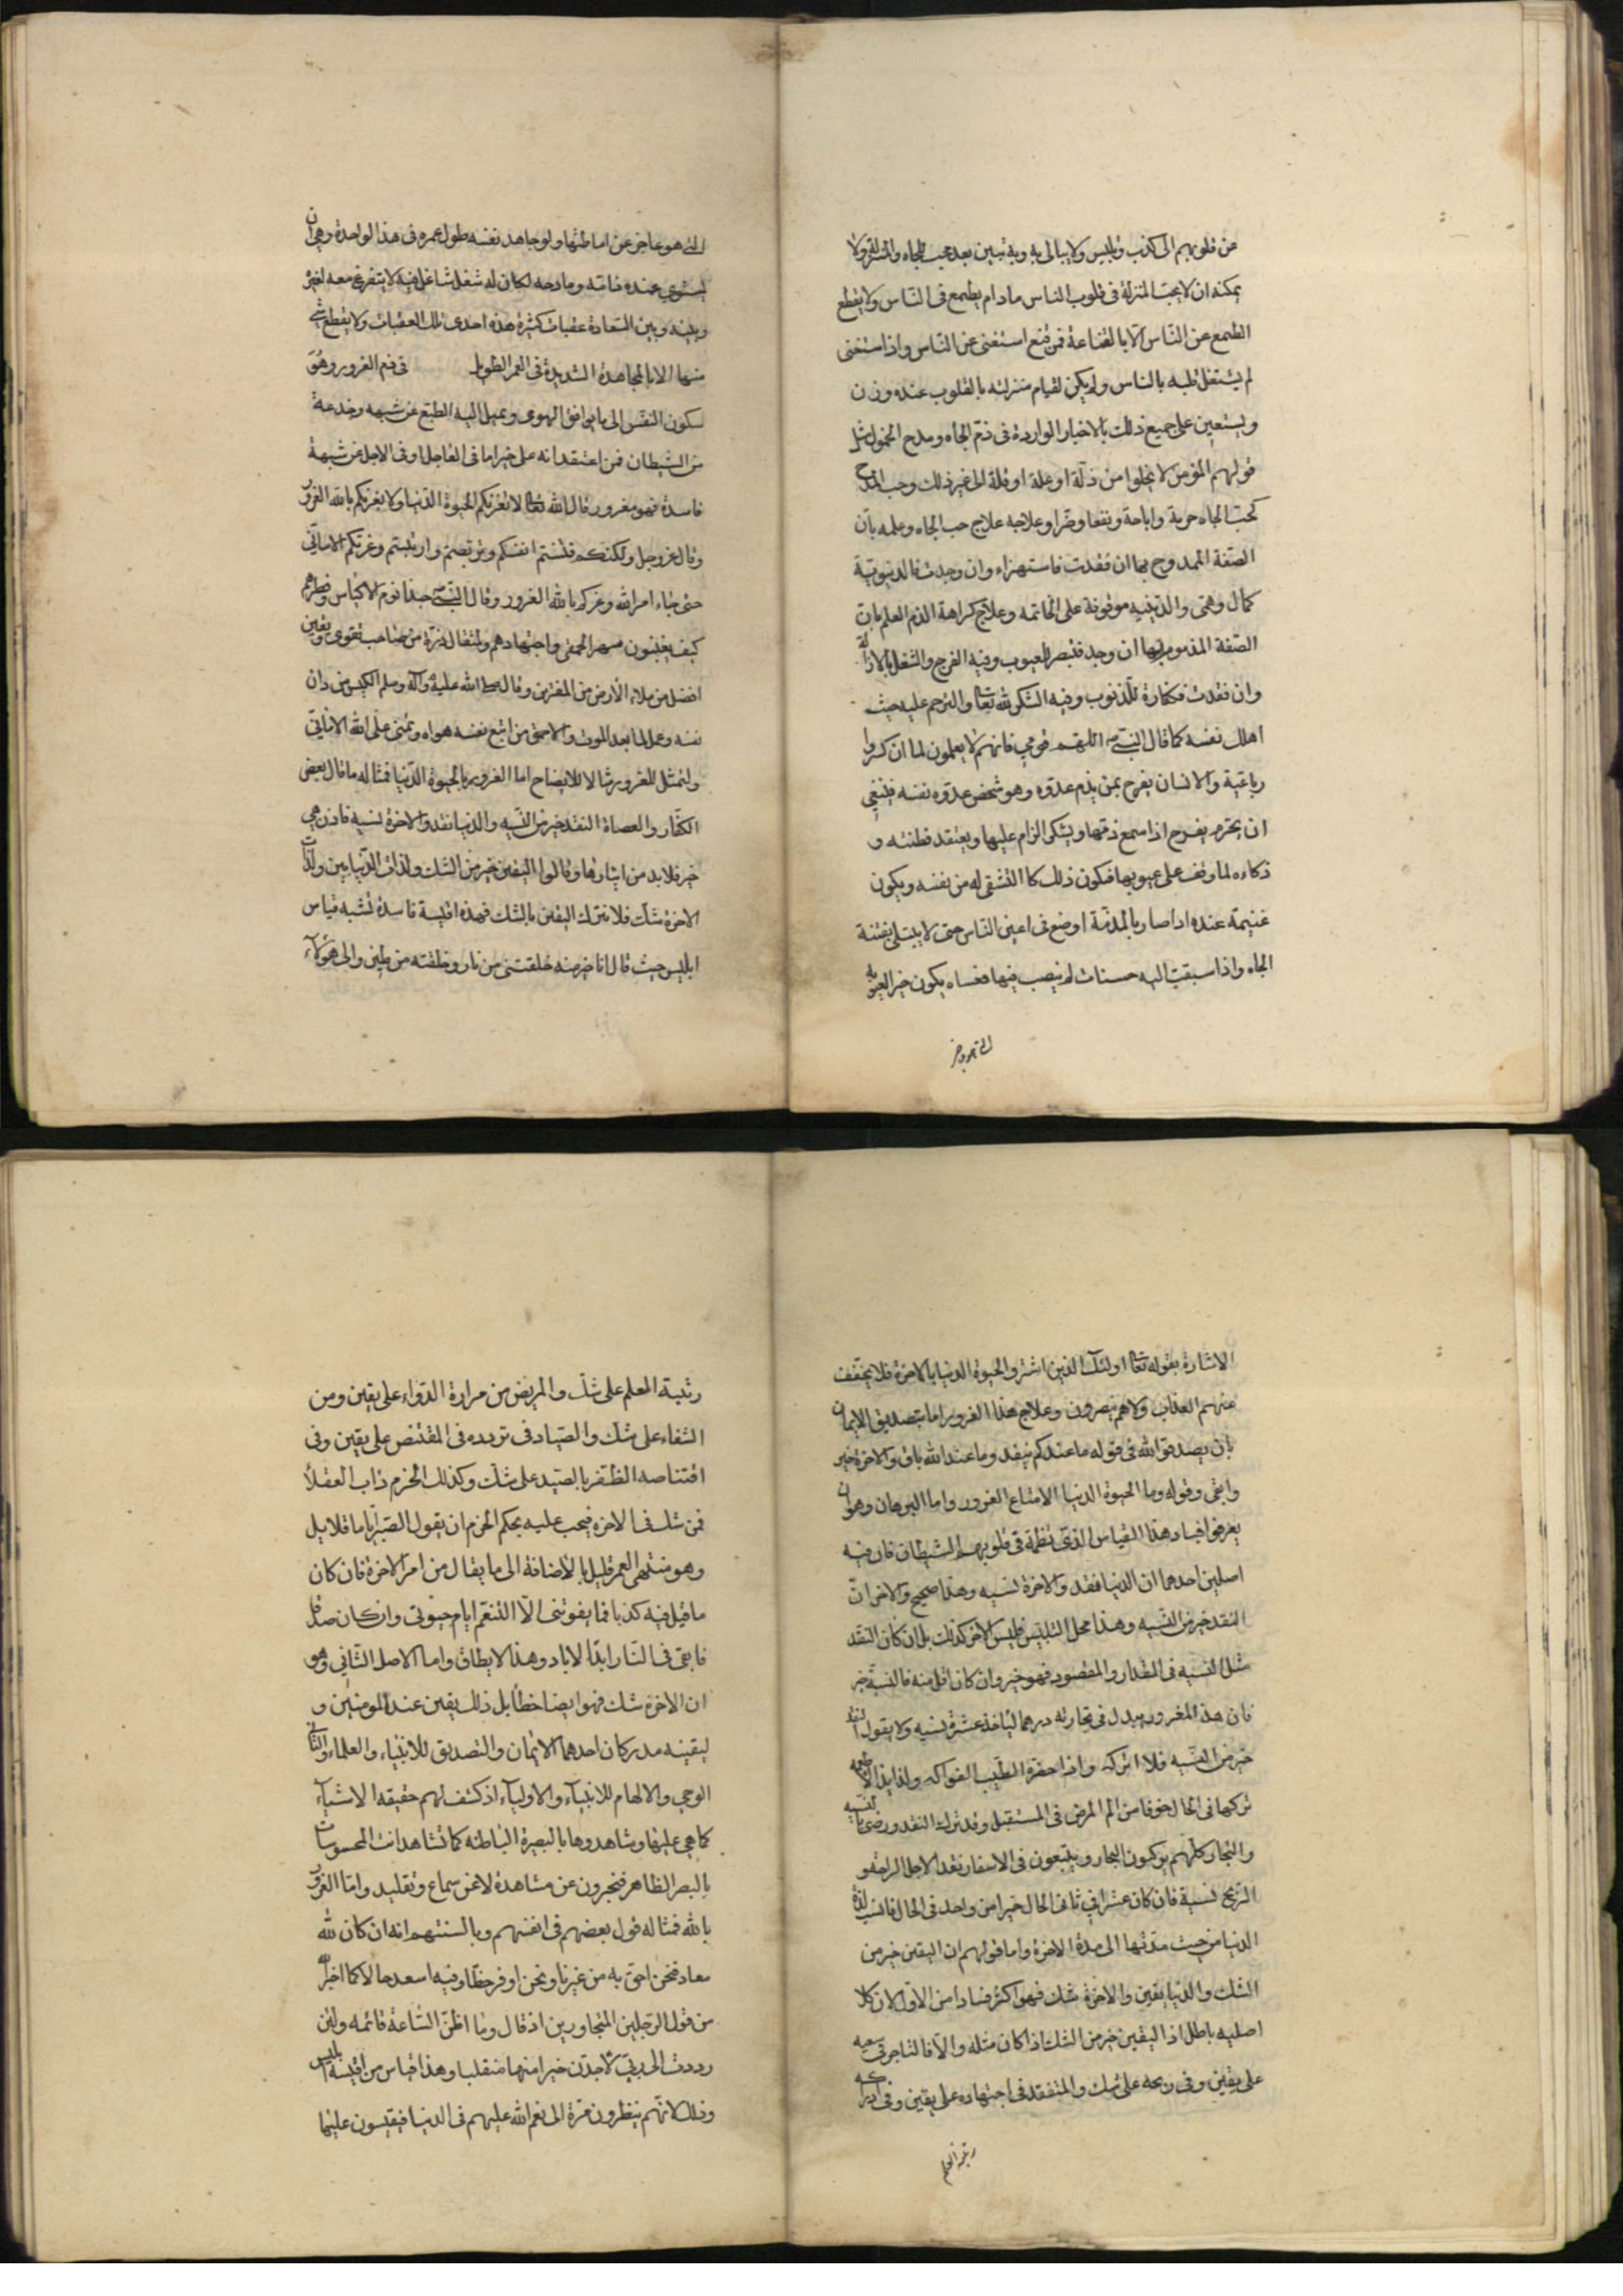 من قلوبهم الى كذب وتلبيس ولا يبالى به وبه تبين بعد محب الجاه والمنزلة ولا
يمكنه ان لا يحب المنزلة فى قلوب الناس مادام يطمع فى الناس ولا يقطع
الطمع عن الناس الا بالقناعة فمن قنع استغنى عن الناس واذا استغنى
لم يشتغل قلبه بالناس ولم يكن لقيام منزلته بالقلوب عنده وزن
ويستعين على جميع ذلك بالاخبار الواردة فى ذم الجاه ومدح الخمول مثل
قولهم المؤمن لا يخلوا من ذلة او علة او قلة الى غير ذلك وحب المدح
كحب الجاه حرمة واباحة ونفعا وضرا وعلاجه علاج حب الجاه وعلمه بان
الصفة الممدوح بها ان فقدت فاستهزاء وان وجدت فالدنيوية
كمال وهمى والدينيه موقوفة على الخاتمه وعلاج كراهة الذم العلم بان
الصفة المذموم بها ان وجد فتبصر العيوب وفيه الفرح والشغل بالازالة
وان فقدت فكفارة للذنوب وفيه الشكر لله تعا والترحم عليه حيث
اهلك نفسه كما قال النبى ص اللهم اهد قومى فانهم لا يعلمون لما ان كسروا
رباعية والانسان يفرح بمن يذم عدوه وهو شخص عدوه نفسه فينبغى
ان يحترم بفرح اذا سمع ذمها ويشكر الزام عليها ويعتقد فطنته و
ذكاءه لما وقف على عيوبها فيكون ذلك كالتشفى له من نفسه ويكون
غنيمة عنده اذا صار بالمذمة اوضع فى اعين الناس حتى لا يبتلى بفتنة
الجاه واذا سبقت اليه حسنات لم ينصب فيها فعساه يكون خير العيوبه
التى هو عاجز
التى هو عاجز عن اماطتها ولو جاهد نفسه طول عمره فى هذا الواحدة وهى ان
يستوى عنده ذامه ومادحه لكان له شغل شاغل فيه لا يتفرغ معه لغيره
وبينه وبين السعادة عقبات كثيرة هذه احدى تلك العقبات ولا يقطع شئ
منها الا بالمجاهدة الشديدة فى العمر الطويل فى ذم الغرور وهو
سكون النفس الى ما يوافق الهوى ويميل اليه الطبع عن شبهه وخدعة
من الشيطان فمن اعتقد انه على خير اما فى العاجل او فى الاجل عن شبهة
فاسدة فهو مغرور قال الله تعا لا تغرنكم الحيوة الدنيا ولا يغرنكم بالله الغرور
وقال عز وجل ولكنكم فتنتم انفسكم وتربصتم وارتبتم وغرتكم الامانى
حتى جاء امر الله وغركم بالله الغرور وقال النبى ص حبذا نوم الاكياس وفطرهم
كيف يغبنون سهر الحمقى واجتهادهم ولمثقال ذرة من صاحب تقوى ويقين
افضل من ملاء الارض من المغترين وقال صلى الله عليه وآله وسلم الكيس من دان
نفسه وعمل لما بعد الموت والاحمق من اتبع نفسه هواه وتمنى على الله الامانى
ولنمثل للغرور مثالا للايضاح اما الغرور بالحيوة الدنيا فمثاله ما قال بعض
الكفار والعصاة النقد خير من النسيه والدنيا نقد والاخرة نسيه فاذن هى
خير فلا بد من ايثارها وقالوا اليقين خير من الشك ولذات الدنيا يقين ولذات
الاخرة شك فلا نترك اليقين بالشك فهذه اقيسة فاسدة تشبه قياس
ابليس حيث قال انا خير منه خلقتنى من نار وخلقته من طين والى هؤلاء
الاشارة بقوله تعا اولئك الذين اشتروا الحيوة الدنيا بالاخرة فلا يخفف
عنهم العذاب ولا هم ينصرون وعلاج هذا الغرور اما بتصديق الايمان
بان يصدق الله فى قوله ما عندكم ينفد وما عند الله باق والاخرة خير
وابقى وقوله وما الحيوة الدنيا الا متاع الغرور واما البرهان وهو ان
يعرف فساد هذا القياس الذى نظمه فى قلوبهم الشيطان فان فيه
اصلين احدهما ان الدنيا نقد والاخرة نسيه وهذا صحيح والاخر ان
النقد خير من النسيه وهذا محل التلبيس فليس الامر كذلك بل ان كان النقد
مثل النسيه فى المقدار والمقصود فهو خير وان كان اقل منه فالنسية خير
فان هذا المغرور يبدل فى تجارته درهما لياخذ عشرة نسيه ولا يقول النقد
خير من النسيه فلا اتركه واذا حذره الطبيب الفواكه ولذايذ الاطعمه
تركها فى الحال خوفا من الم المرض فى المستقبل وقد ترك النقد ورضى بالنسيه
والتجار كلهم يركبون البحار ويتبعون فى الاسفار نقدا لاجل الراحة و
الربح نسية فان كان عشرا فى ثانى الحال خيرا من واحد فى الحال فانسب لذة
الدنيا من حيث مدتها الى مدة الاخرة واما قولهم ان اليقين خير من
الشك والدنيا يقين والاخرة شك فهو اكثر فسادا من الاول لان كلا
اصليه باطل اذ اليقين خير من الشك اذا كان مثله والا فالتاجر فى سعيه
على يقين وفى ربحه على شك والمتفقد فى اجتهاده على يقين وفى ادراكه
رتبة العلم
رتبة المعلم على شك والمريض من مرارة الدواء على يقين ومن
الشفاء على شك والصياد فى تردده فى المقتنص على يقين وفى
اقتناصه الظفر بالصيد على شك وكذلك الحزم داب العقلا
فمن شك فى الاخره فيجب عليه بحكم الحزم ان يقول الصبر اياما قلايل
وهو منتهى العمر قليل بالاضافة الى ما يقال من امر الاخرة فان كان
ما قيل فيه كذبا فما يفوتنى الا التنعم ايام حيوتى وان كان صدقا
فابقى فى النار ابد الاباد وهذا لا يطاق واما الاصل الثانى وهو
ان الاخرة شك فهو ايضا خطأ بل ذلك يقين عند المومنين و
ليقينه مدركان احدهما الايمان والتصديق للانبياء والعلماء والثانى
الوحى والالهام للانبياء والاولياء اذ كشف لهم حقيقه الاشياء
كما هى عليها وشاهدوها بالبصيرة الباطنه كما تشاهد انت المحسوسات
بالبصر الظاهر فيخبرون عن مشاهدة لا عن سماع وتقليد واما الغرور
بالله فمثاله قول بعضهم فى انفسهم وبالسنتهم انه ان كان لله
معاد فنحن احق به من غيرنا ونحن اوفر حظا وفيه اسعد حالا كما اخبر الله
من قول الرجلين المتجاورين اذ قال وما اظن الساعة قائمه ولئن
رددت الى ربى لاجدن خيرا منها منقلبا وهذا قياس من اقيسة ابليس
وذلك لانهم ينظرون مرة الى نعم الله عليهم فى الدنيا فيقيسون عليها